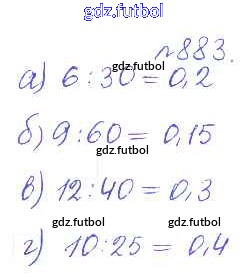 gdz.futbol
№883.
gdz.futbol
а) 6 : 30 = 0,2
gdz.futbol
б) 9 : 60 = 0,15
gdz.futbol
в) 12 : 40 = 0,3
gdz.futbol gdz.futbol
г) 10 : 25 = 0,4